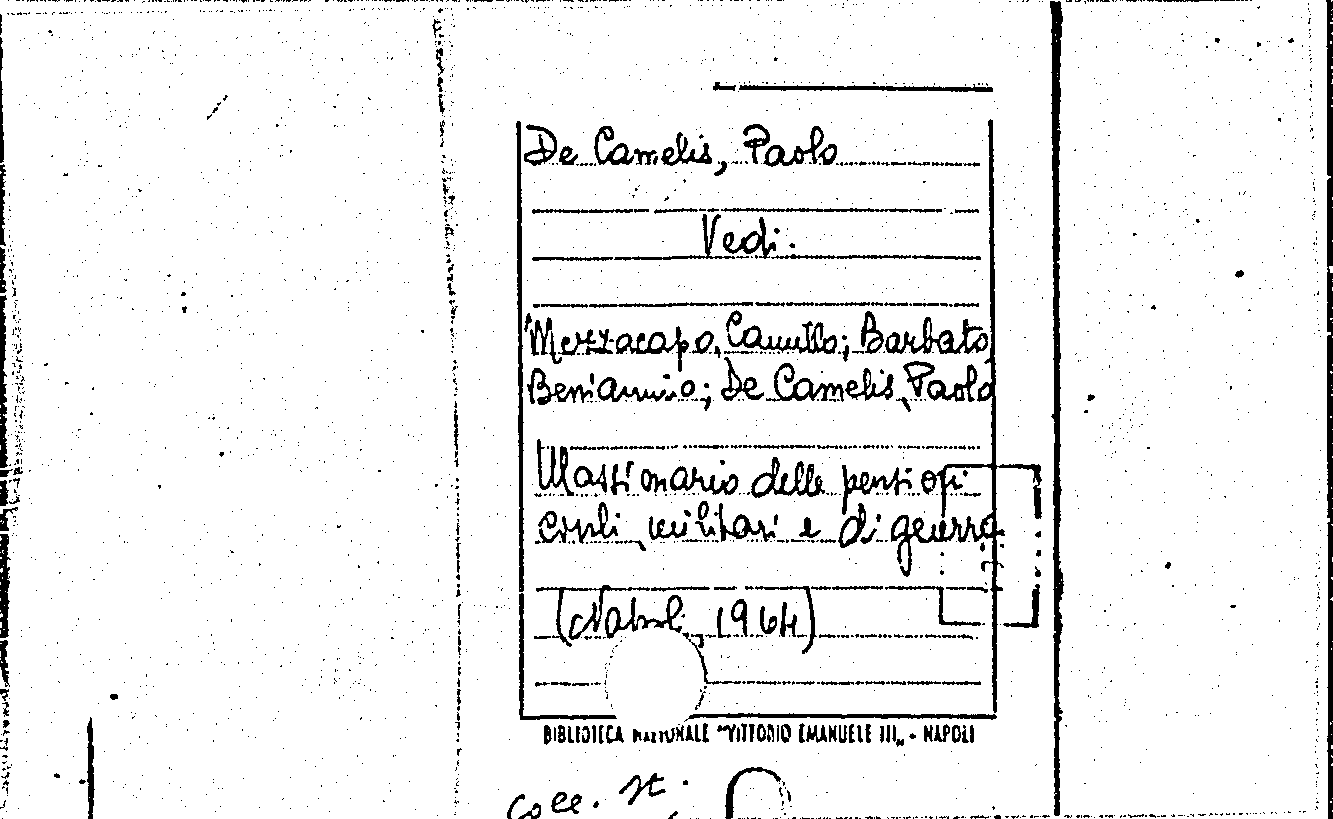 De Camelis, Paolo
Vedi:
Mezzacapo, Camillo; Barbato
Beniamino; De Camelis, Paolo
Massimario delle pensioni
civili, militari e di guerra
(Napoli, 1964)
BIBLIOTECA NAZIONALE "VITTORIO EMANUELE III" - NAPOLI
Coll. st.